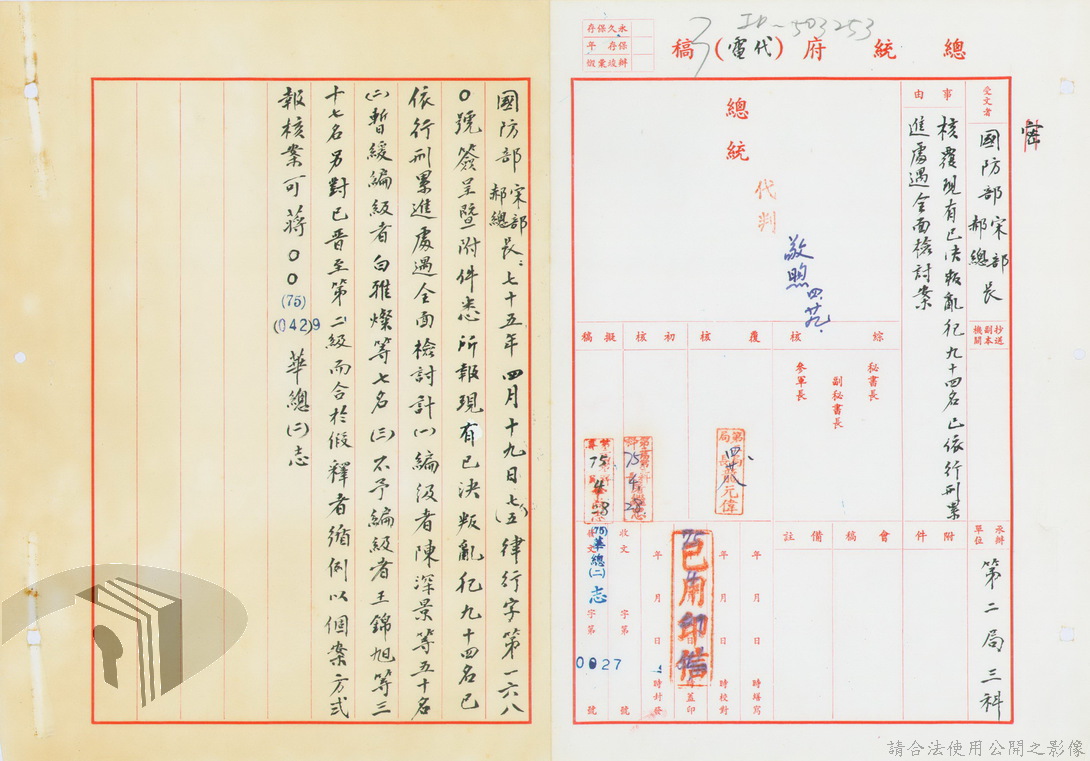 ID-503253
總統府(代電)稿
永久保存
保存 年
辦竣彙燬
密
受文者
國防部宋部郝總長
抄送副本機關
事由
核覆現有已決叛亂犯九十四名已依行刑累
進處遇全面檢討案
總統
代判
敬煦
四.
綜核
覆核
初核
擬稿
秘書長
副秘書長
參軍長
75
4
28
75
4
28
承辦單位
第二局三科
附件
會稿
備註
年 月 日 時繕寫
年 月 日 時校對
年 月 日 時蓋印
年 月 日 時封發
75
4
已用印信
收文 字第 號
發文 字第 號
(75)華總(二)志
0027
國防部宋部郝總長:七十五年四月十九日(75)律行字第一六八
○號簽呈暨附件悉所報現有已決叛亂犯九十四名已
依行刑累進處遇全面檢討計(一)編級者陳深景等五十名
(二)暫緩編級者白雅燦等七名(三)不予編級者王錦旭等三
十七名另對已晉至第二級而合於假釋者循例以個案方式
報核案可蔣○○(75)(042)9 華總(二)志
請合法使用公開之影像